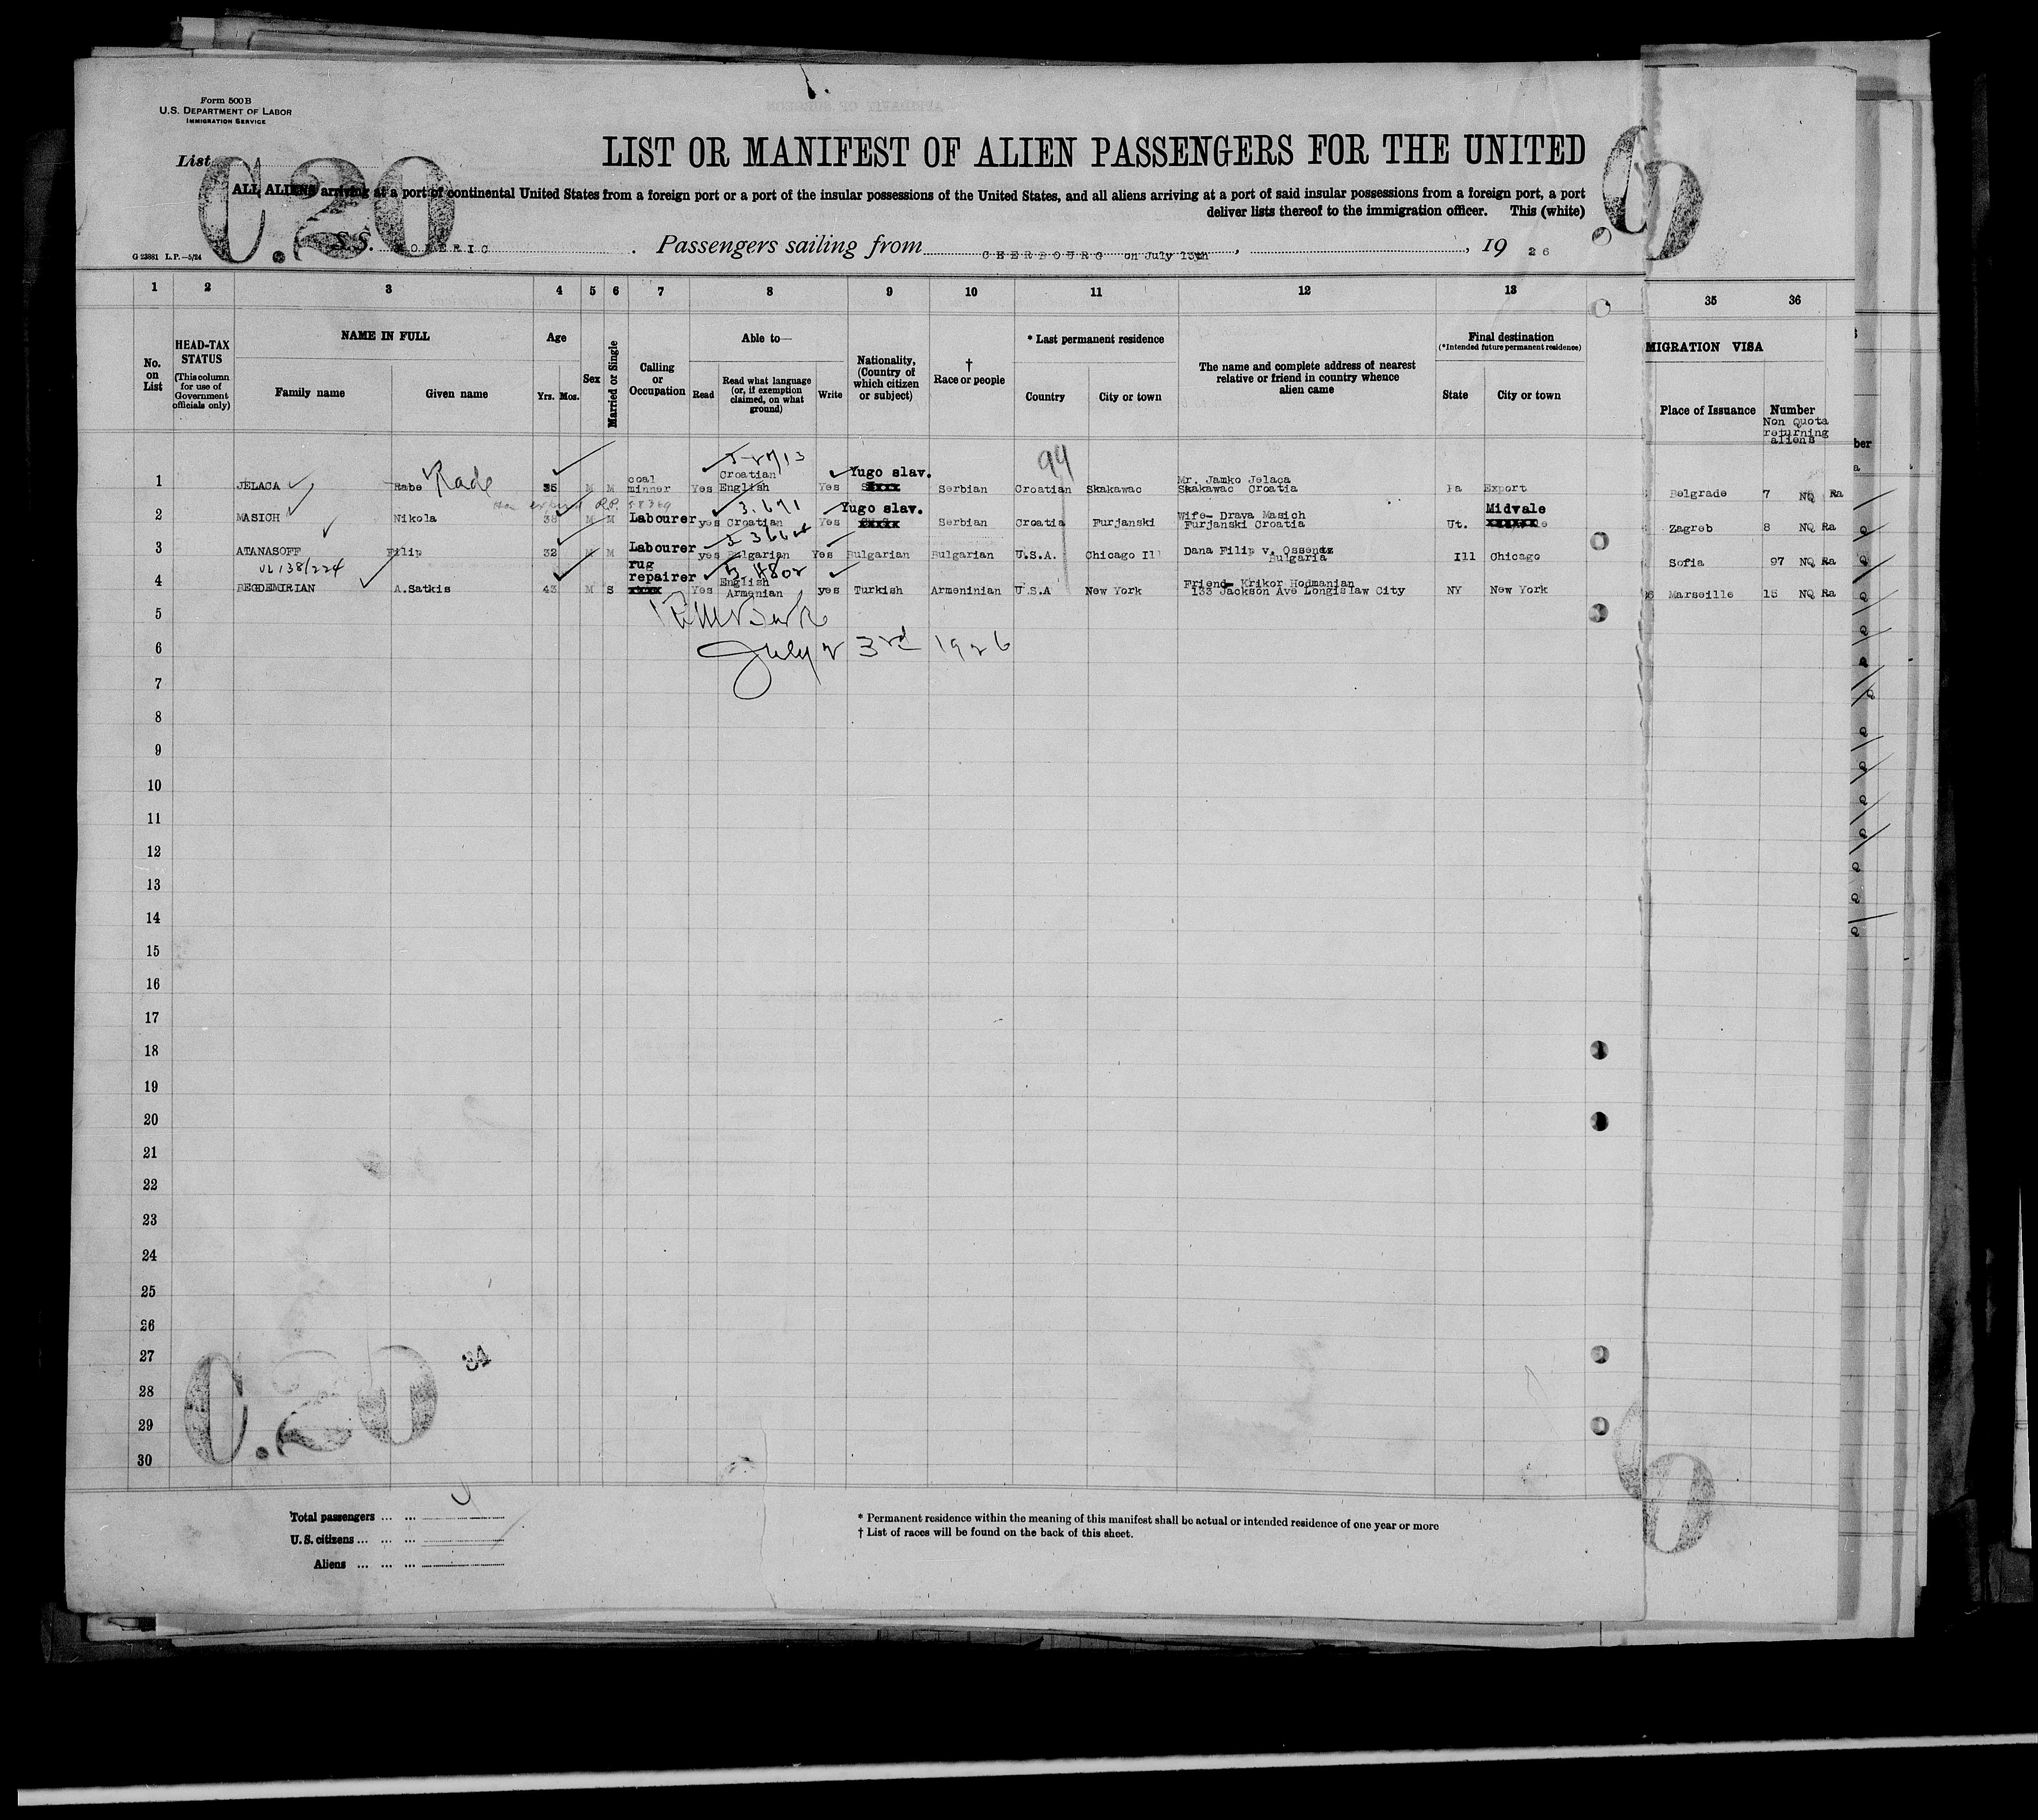 Form 500 B
U.S. DEPARTMENT OF LABOR
IMMIGRATION SERVICE
List
C.20
LIST OR MANIFEST OF ALIEN PASSENGERS FOR THE UNITED
ALL ALIENS arriving at a port of continental United States from a foreign port or a port of the insular possessions of the United States, and all aliens arriving at a port of said insular possessions from a foreign port, a port
deliver lists thereof to the immigration officer. This (white)
S.S. HOMERIC Passengers sailing from CHERBOURG on July 15th, 19 26
G 23881 L.P.—5/24
1 2 3 4 5 6 7 8 9 10 11 12 13 35 36
No. on List
HEAD-TAX STATUS (This column for use of Government officials only)
NAME IN FULL
Family name Given name
Age
Yrs. Mos.
Sex
Married or Single
Calling or Occupation
Able to—
Read Read what language (or, if exemption claimed, on what ground) Write
Nationality, (Country of which citizen or subject)
† Race or people
* Last permanent residence
Country City or town
The name and complete address of nearest relative or friend in country whence alien came
Final destination
(*Intended future permanent residence)
State City or town
MIGRATION VISA
Place of Issuance Number
Non Quota returning aliens
ber
99
1 JELACA Rabe Rade 35 M M coal minner Yes Croatian English Yes Yugo slav. Serbian Croatian Skakawac Mr. Jamko Jelaca Skakawac Croatia Pa Export Belgrade 7 NQ Ra
2 MASICH Nikola 38 M M Labourer yes 3.671 Croatian Yes Yugo slav. Serbian Croatia Furjanski Wife- Drava Masich Furjanski Croatia Ut. Midvale Zagreb 8 NQ Ra
3 ATANASOFF Filip 32 M M Labourer yes Bulgarian Yes Bulgarian Bulgarian U.S.A. Chicago Ill Dana Filip v. Bulgaria Ill Chicago Sofia 97 NQ Ra
4 BEGDEMIRIAN A.Satkis 43 M S rug repairer Yes English Armenian yes Turkish Armeninian U.S.A New York Friend- Krikor Hodmanian 133 Jackson Ave Longislaw City NY New York Marseille 15 NQ Ra
5
6 July 23rd 1926
7
8
9
10
11
12
13
14
15
16
17
18
19
20
21
22
23
24
25
26
27
28
29
30
C.20
34
Total passengers ... ...
U.S. citizens ... ... ...
Aliens ... ... ...
* Permanent residence within the meaning of this manifest shall be actual or intended residence of one year or more
† List of races will be found on the back of this sheet.